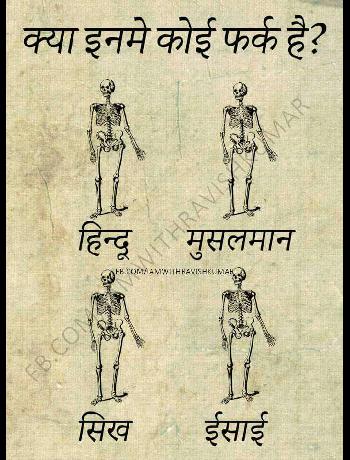 क्या इनमे कोई फर्क है?
हिन्दू मुसलमान
FB.COM/IAMWITHRAVISHKUMAR
सिख ईसाई
FB.COM/IAMWITHRAVISHKUMAR